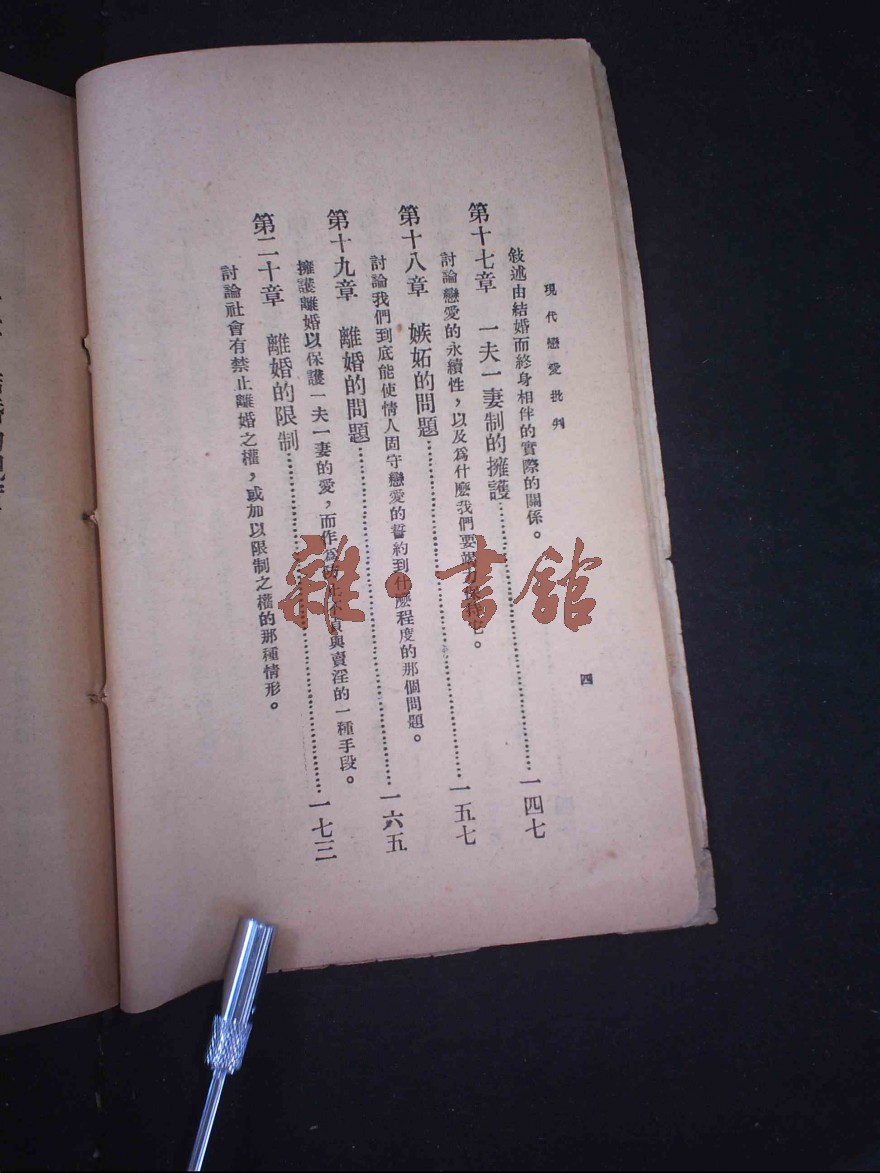 現代戀愛批判
四
敍述由結婚而終身相伴的實際的關係。
第十七章 一夫一妻制的擁護……一四七
討論戀愛的永續性，以及爲什麽我們要竭力保持它。
第十八章 嫉妬的問題……一五七
討論我們到底能使情人固守戀愛的誓約到什麽程度的那個問題。
第十九章 離婚的問題……一六五
擁護離婚以保護一夫一妻的愛，而作爲防止不貞與賣淫的一種手段。
第二十章 離婚的限制……一七三
討論社會有禁止離婚之權，或加以限制之權的那種情形。
雜·書館